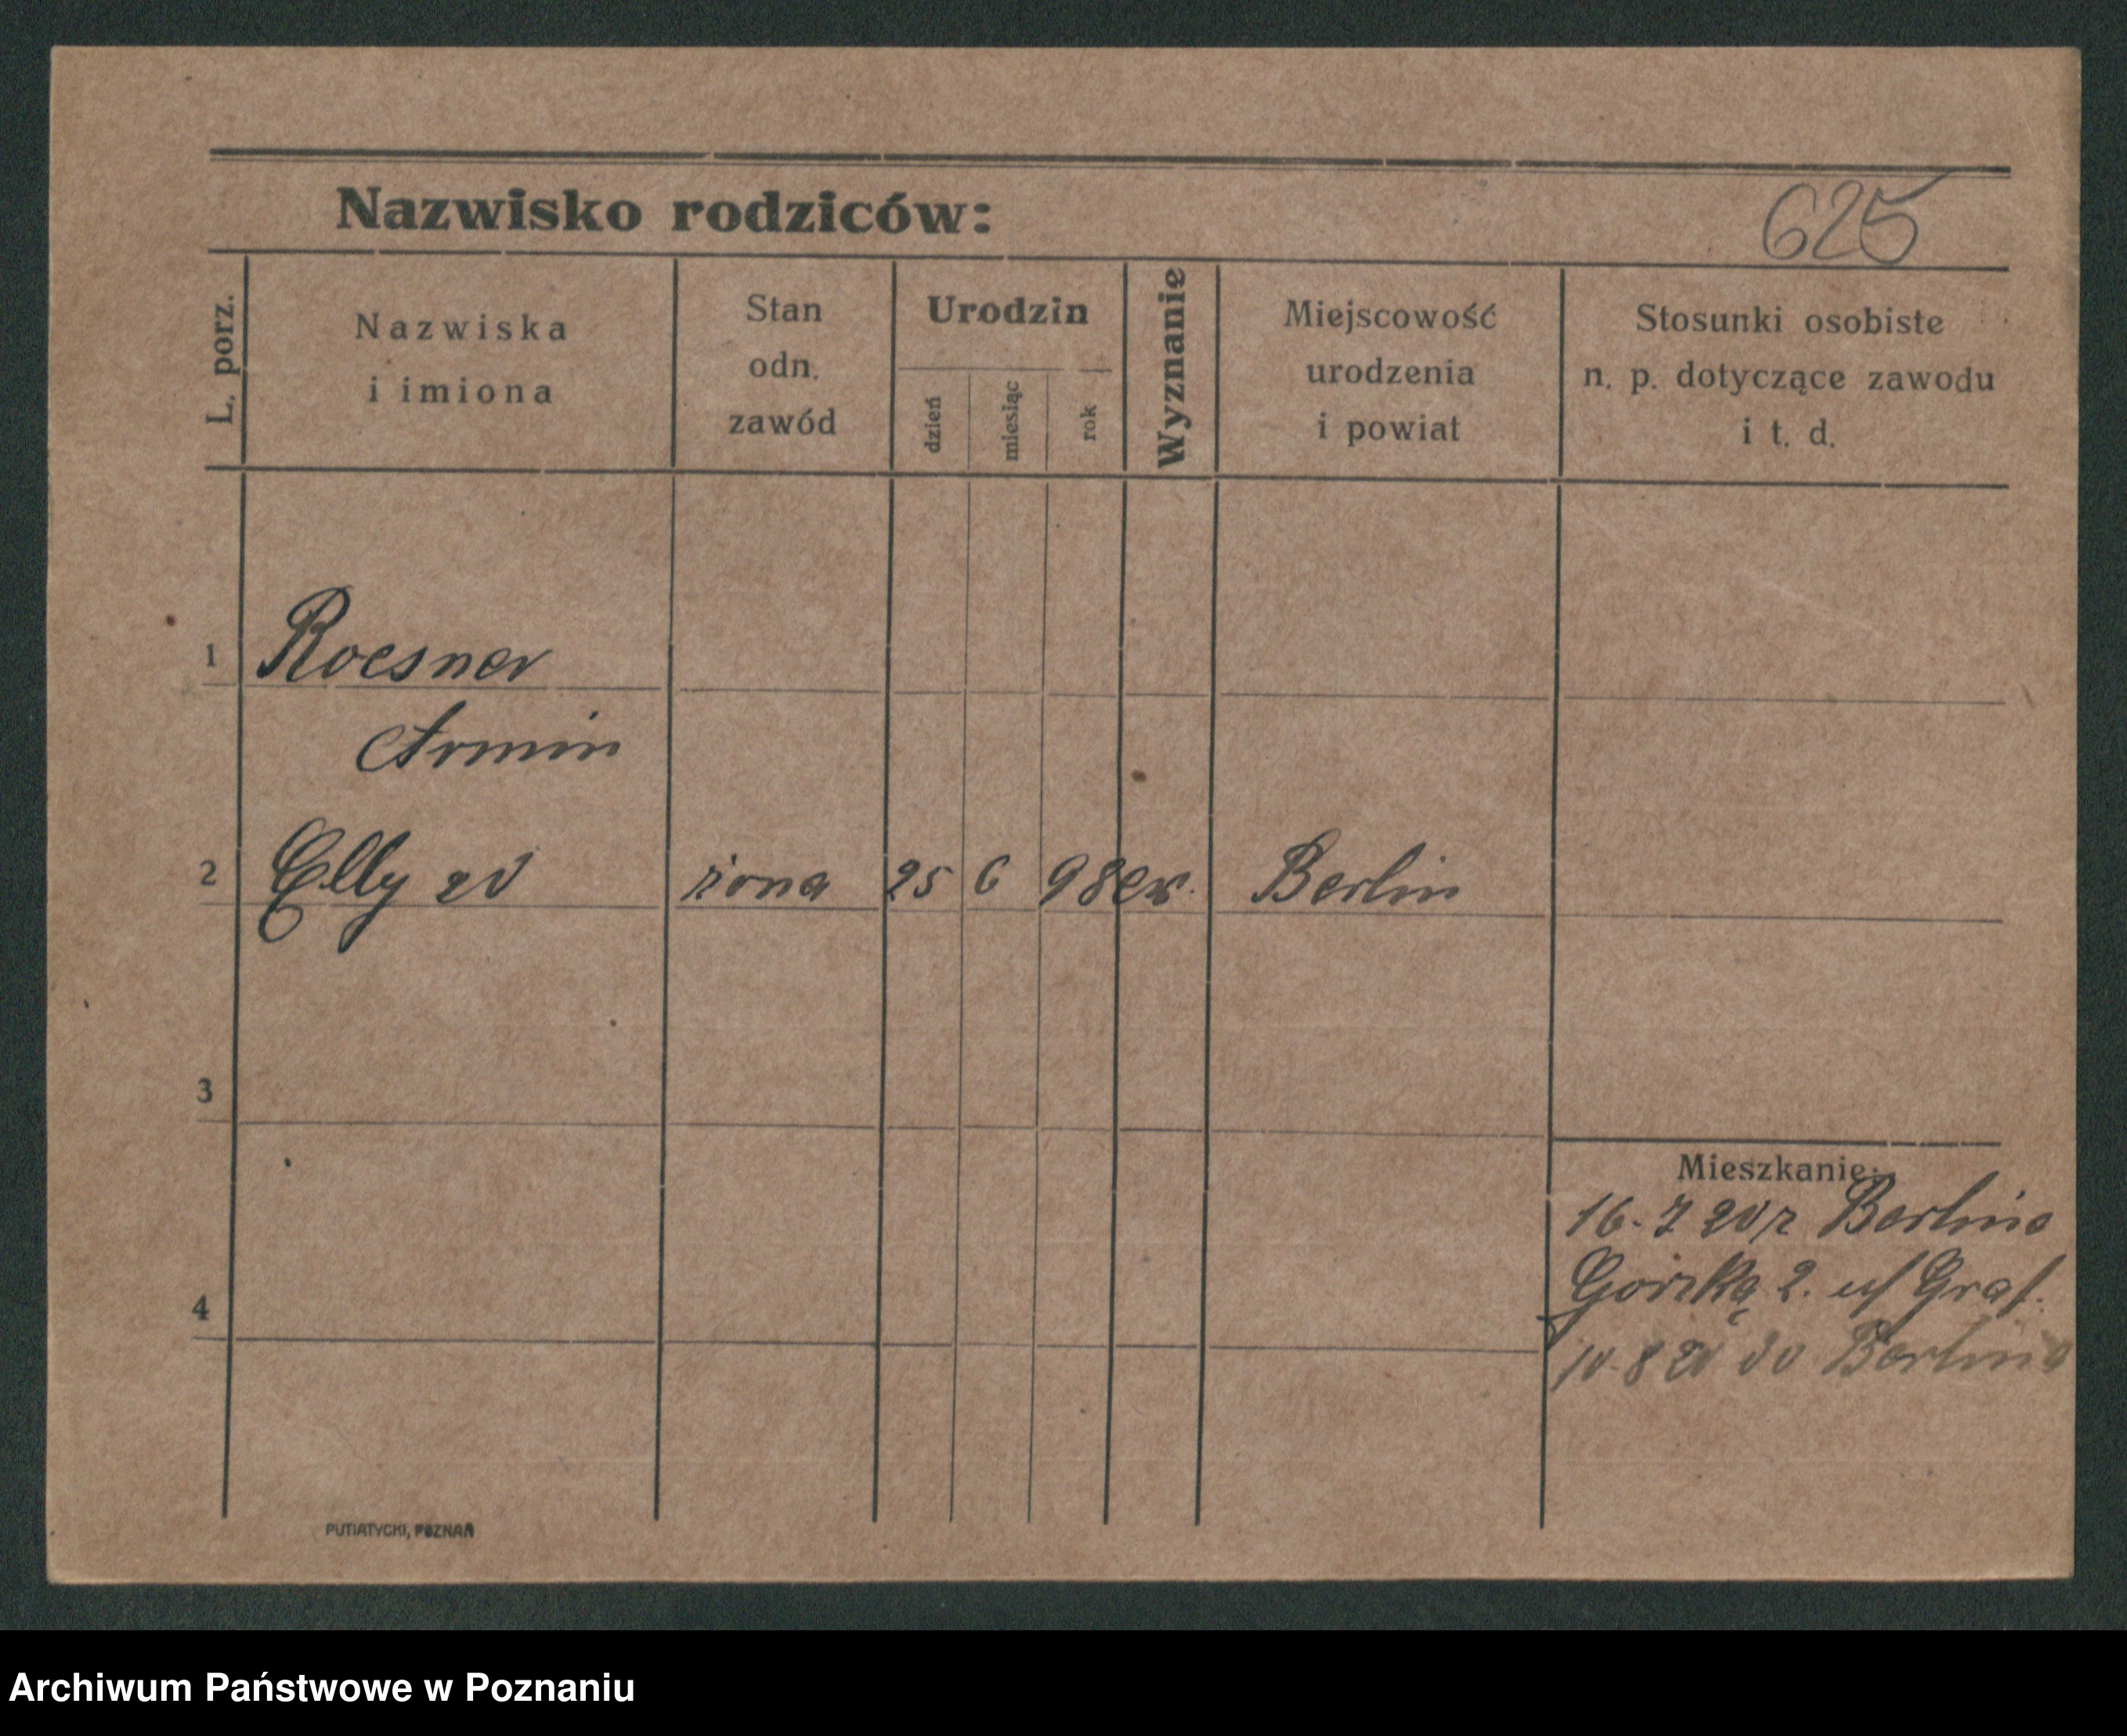 Nazwisko rodziców:
625
L. porz.
Nazwiska
i imiona
Stan
odn.
zawód
Urodzin
dzień
miesiąc
rok
Wyznanie
Miejscowość
urodzenia
i powiat
Stosunki osobiste
n. p. dotyczące zawodu
i t. d.
1 Roesner
Armin
2 Elly zd żona 25 6 98 ew. Berlin
3
Mieszkanie:
16. 7 20 z Berlina
2. Graf.
4
10. 8 20 do Berlina
PUTIATYCKI, POZNAŃ
Archiwum Państwowe w Poznaniu